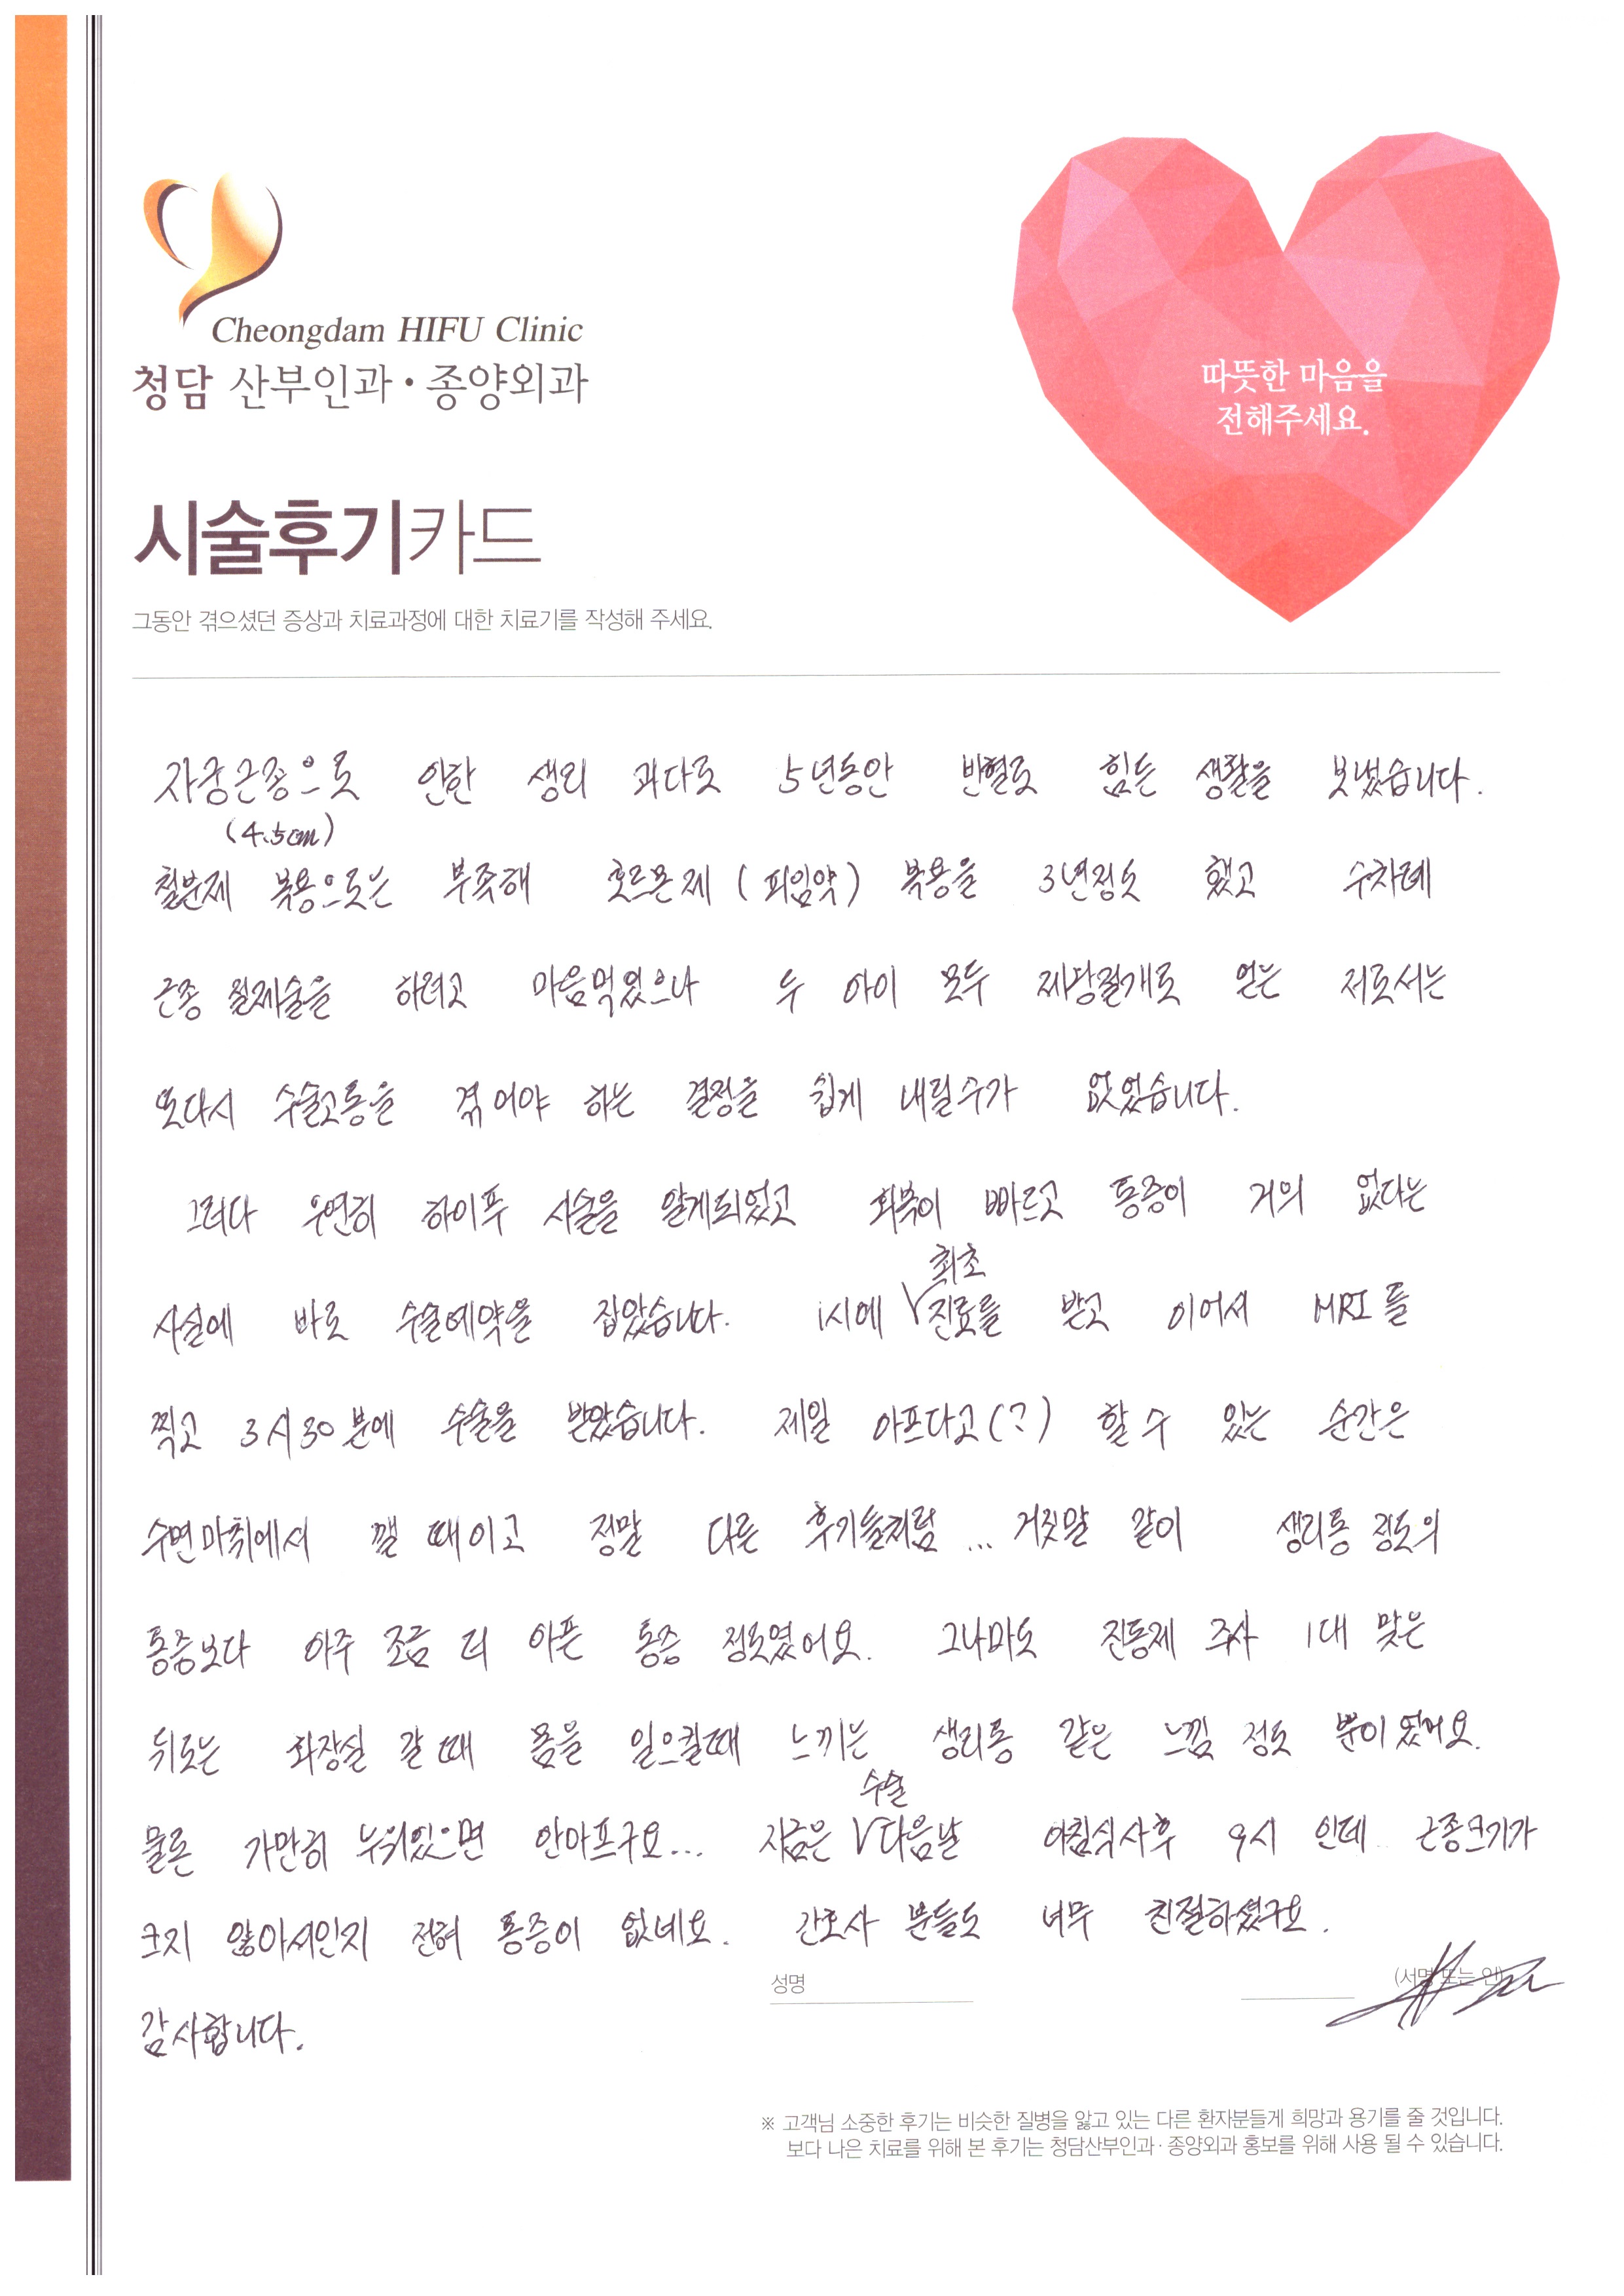 Cheongdam HIFU Clinic
청담 산부인과·종양외과
따뜻한 마음을
전해주세요.
시술후기카드
그동안 겪으셨던 증상과 치료과정에 대한 치료기를 작성해 주세요.
자궁근종으로 인한 생리 과다로 5년동안 빈혈로 힘든 생활을 보냈습니다.
(4.5cm)
철분제 복용으로는 부족해 호르몬제 (피임약) 복용을 3년정도 했고 수차례
근종 절제술을 하려고 마음먹었으나 두 아이 모두 제왕절개로 얻는 저로서는
또다시 수술고통을 겪어야 하는 결정을 쉽게 내릴수가 없었습니다.
그러다 우연히 하이푸 시술을 알게되었고 회복이 빠르고 통증이 거의 없다는
최초
사실에 바로 수술예약을 잡았습니다. 1시에 V진료를 받고 이어서 MRI를
찍고 3시30분에 수술을 받았습니다. 제일 아프다고(?) 할 수 있는 순간은
수면마취에서 깰 때이고 정말 다른 후기들처럼 ... 거짓말 같이 생리통 정도의
통증보다 아주 조금 더 아픈 통증 정도였어요. 그나마도 진통제 주사 1대 맞은
뒤로는 화장실 갈 때 몸을 일으킬때 느끼는 생리통 같은 느낌 정도 뿐이었어요.
수술
물론 가만히 누워있으면 안아프구요... 지금은 V다음날 아침식사후 9시 인데.. 근종크기가
크지 않아서인지 전혀 통증이 없네요. 간호사 분들도 너무 친절하셨구요.
성명 (서명 또는 인)
감사합니다.
※ 고객님 소중한 후기는 비슷한 질병을 앓고 있는 다른 환자분들게 희망과 용기를 줄 것입니다.
보다 나은 치료를 위해 본 후기는 청담산부인과·종양외과 홍보를 위해 사용 될 수 있습니다.